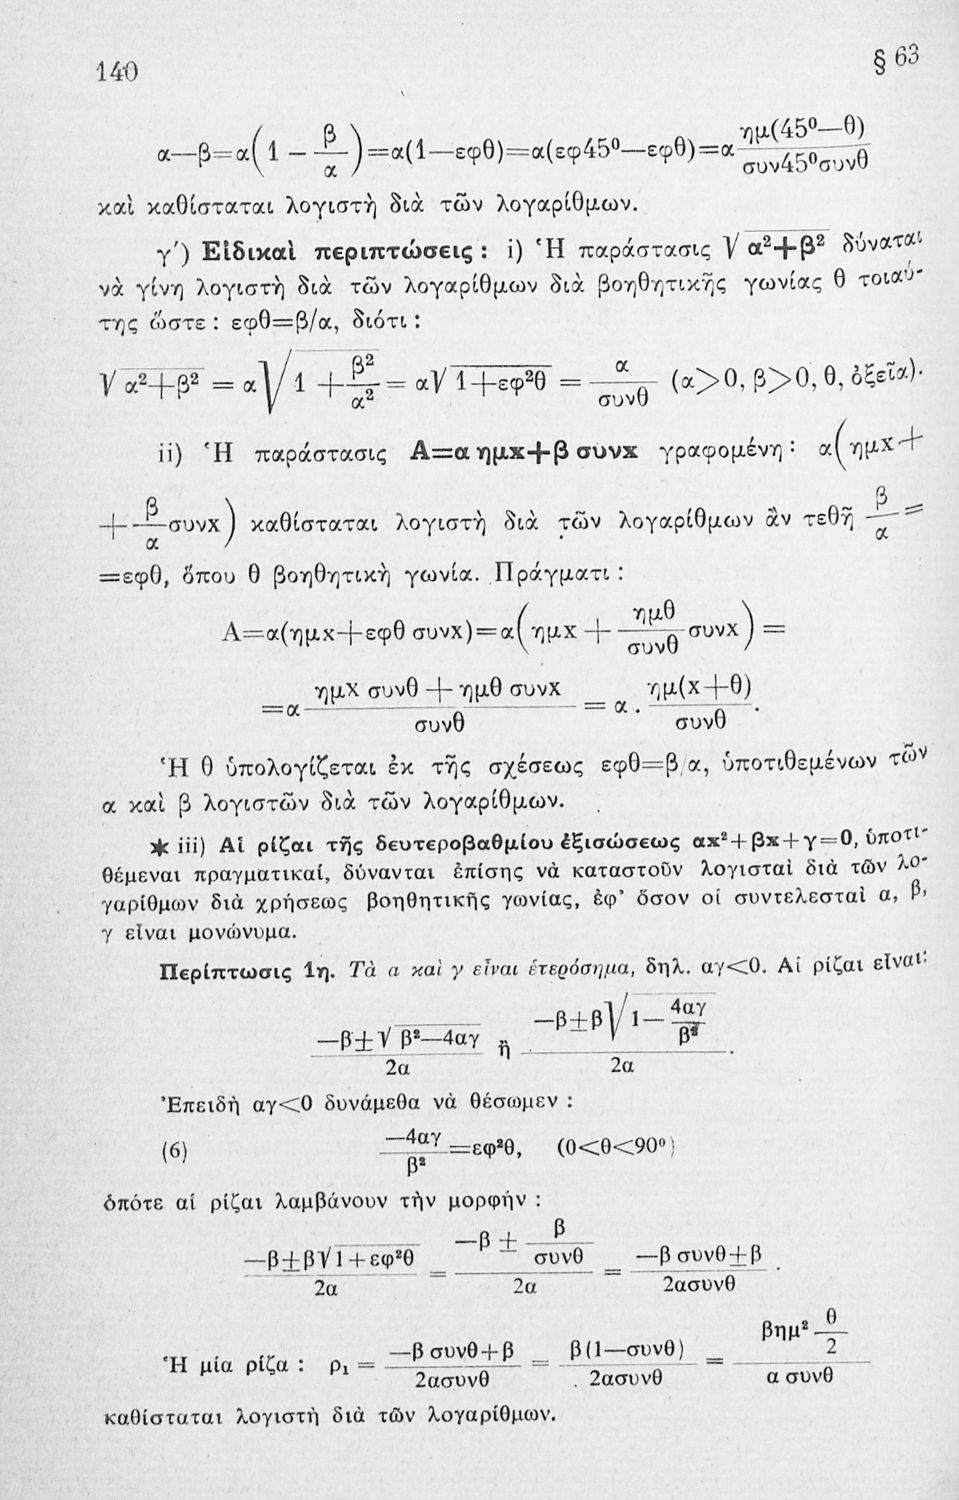 140 § 63
α—β=α(1 − β/α)=α(1—εφθ)=α(εφ45⁰—εφθ)=α ημ(45⁰—θ)/συν45⁰συνθ
καὶ καθίσταται λογιστὴ διὰ τῶν λογαρίθμων.
γ΄) Εἰδικαὶ περιπτώσεις : i) Ἡ παράστασις √α²+β² δύναται
νὰ γίνῃ λογιστὴ διὰ τῶν λογαρίθμων διὰ βοηθητικῆς γωνίας θ τοιαύ-
της ὥστε : εφθ=β/α, διότι :
√α²+β² = α√1 + β²/α² = α√1+εφ²θ = α/συνθ (α>0, β>0, θ, ὀξεῖα).
ii) Ἡ παράστασις Α=α ημx+β συνx γραφομένη : α(ημx+
+ β/α συνx) καθίσταται λογιστὴ διὰ τῶν λογαρίθμων ἂν τεθῇ β/α =
=εφθ, ὅπου θ βοηθητικὴ γωνία. Πράγματι :
Α=α(ημx+εφθ συνx)=α(ημx + ημθ/συνθ συνx) =
=α ημx συνθ + ημθ συνx/συνθ = α . ημ(x+θ)/συνθ .
Ἡ θ ὑπολογίζεται ἐκ τῆς σχέσεως εφθ=β/α, ὑποτιθεμένων τῶν
α καὶ β λογιστῶν διὰ τῶν λογαρίθμων.
✱ iii) Αἱ ρίζαι τῆς δευτεροβαθμίου ἐξισώσεως αx²+βx+γ=0, ὑποτι-
θέμεναι πραγματικαί, δύνανται ἐπίσης νὰ καταστοῦν λογισταὶ διὰ τῶν λο-
γαρίθμων διὰ χρήσεως βοηθητικῆς γωνίας, ἐφ' ὅσον οἱ συντελεσταὶ α, β,
γ εἶναι μονώνυμα.
Περίπτωσις 1η. Τὰ α καὶ γ εἶναι ἑτερόσημα, δηλ. αγ<0. Αἱ ρίζαι εἶναι:
—β±√β²—4αγ/2α ἢ —β±β√1—4αγ/β²/2α .
Ἐπειδὴ αγ<0 δυνάμεθα νὰ θέσωμεν :
(6) —4αγ/β² =εφ²θ, (0<θ<90⁰)
ὁπότε αἱ ρίζαι λαμβάνουν τὴν μορφήν :
—β±β√1+εφ²θ/2α = —β ± β/συνθ/2α = —β συνθ±β/2ασυνθ .
Ἡ μία ρίζα : ρ₁ = —β συνθ+β/2ασυνθ = β(1—συνθ)/2ασυνθ = βημ² θ/2/α συνθ
καθίσταται λογιστὴ διὰ τῶν λογαρίθμων.